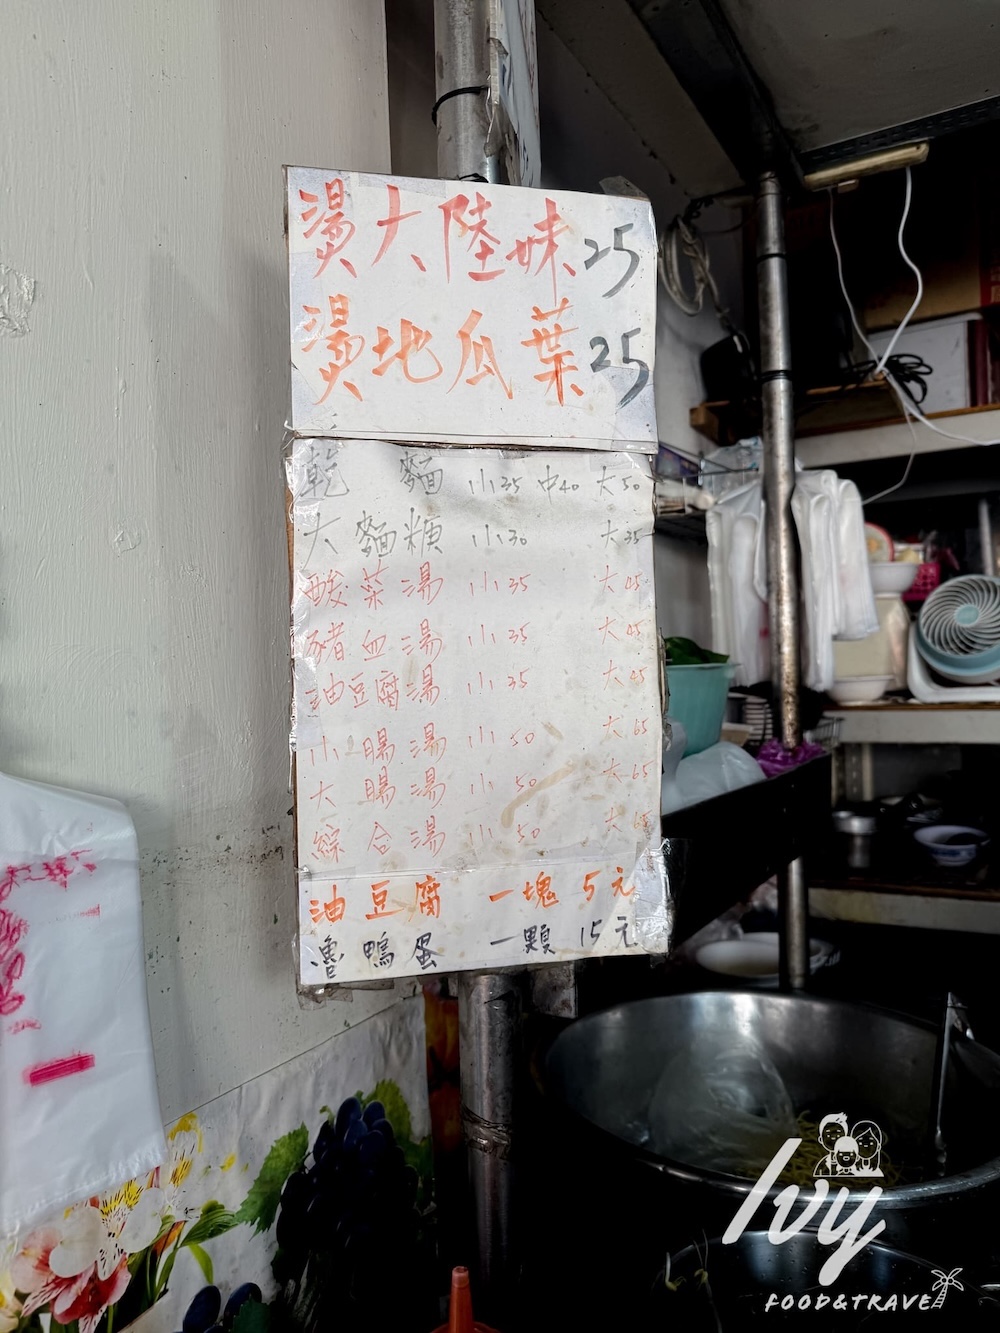 燙大陸妹25
燙地瓜葉25
乾麵 小35 中40 大50
大麵糖 小30 大35
酸菜湯 小35 大45
豬血湯 小35 大45
油豆腐湯 小35 大45
小腸湯 小50 大65
大腸湯 小50 大65
綜合湯 小50 大65
油豆腐 一塊 5元
魯鴨蛋 一顆 15元
Ivy
FOOD&TRAVEL